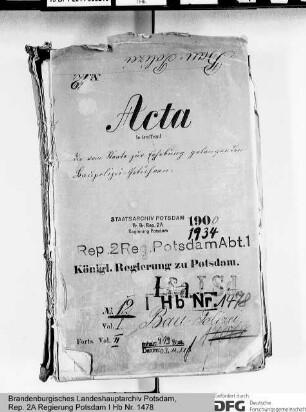 Acta
betreffend
die vom Staate zur Erhebung gelangenden
Baupolizei-Gebühren.
STAATSARCHIV POTSDAM
Pr. Br. Rep. 2A
Regierung Potsdam
1900
1934
Rep. 2 Reg. Potsdam Abt. 1
Königl. Regierung zu Potsdam.
I Hb Nr. 1478
Vol. I
Bau-Polizei
Forts. Vol. II
Brandenburgisches Landeshauptarchiv Potsdam,
Rep. 2A Regierung Potsdam I Hb Nr. 1478
Gefördert durch:
DFG Deutsche
Forschungsgemeinschaft